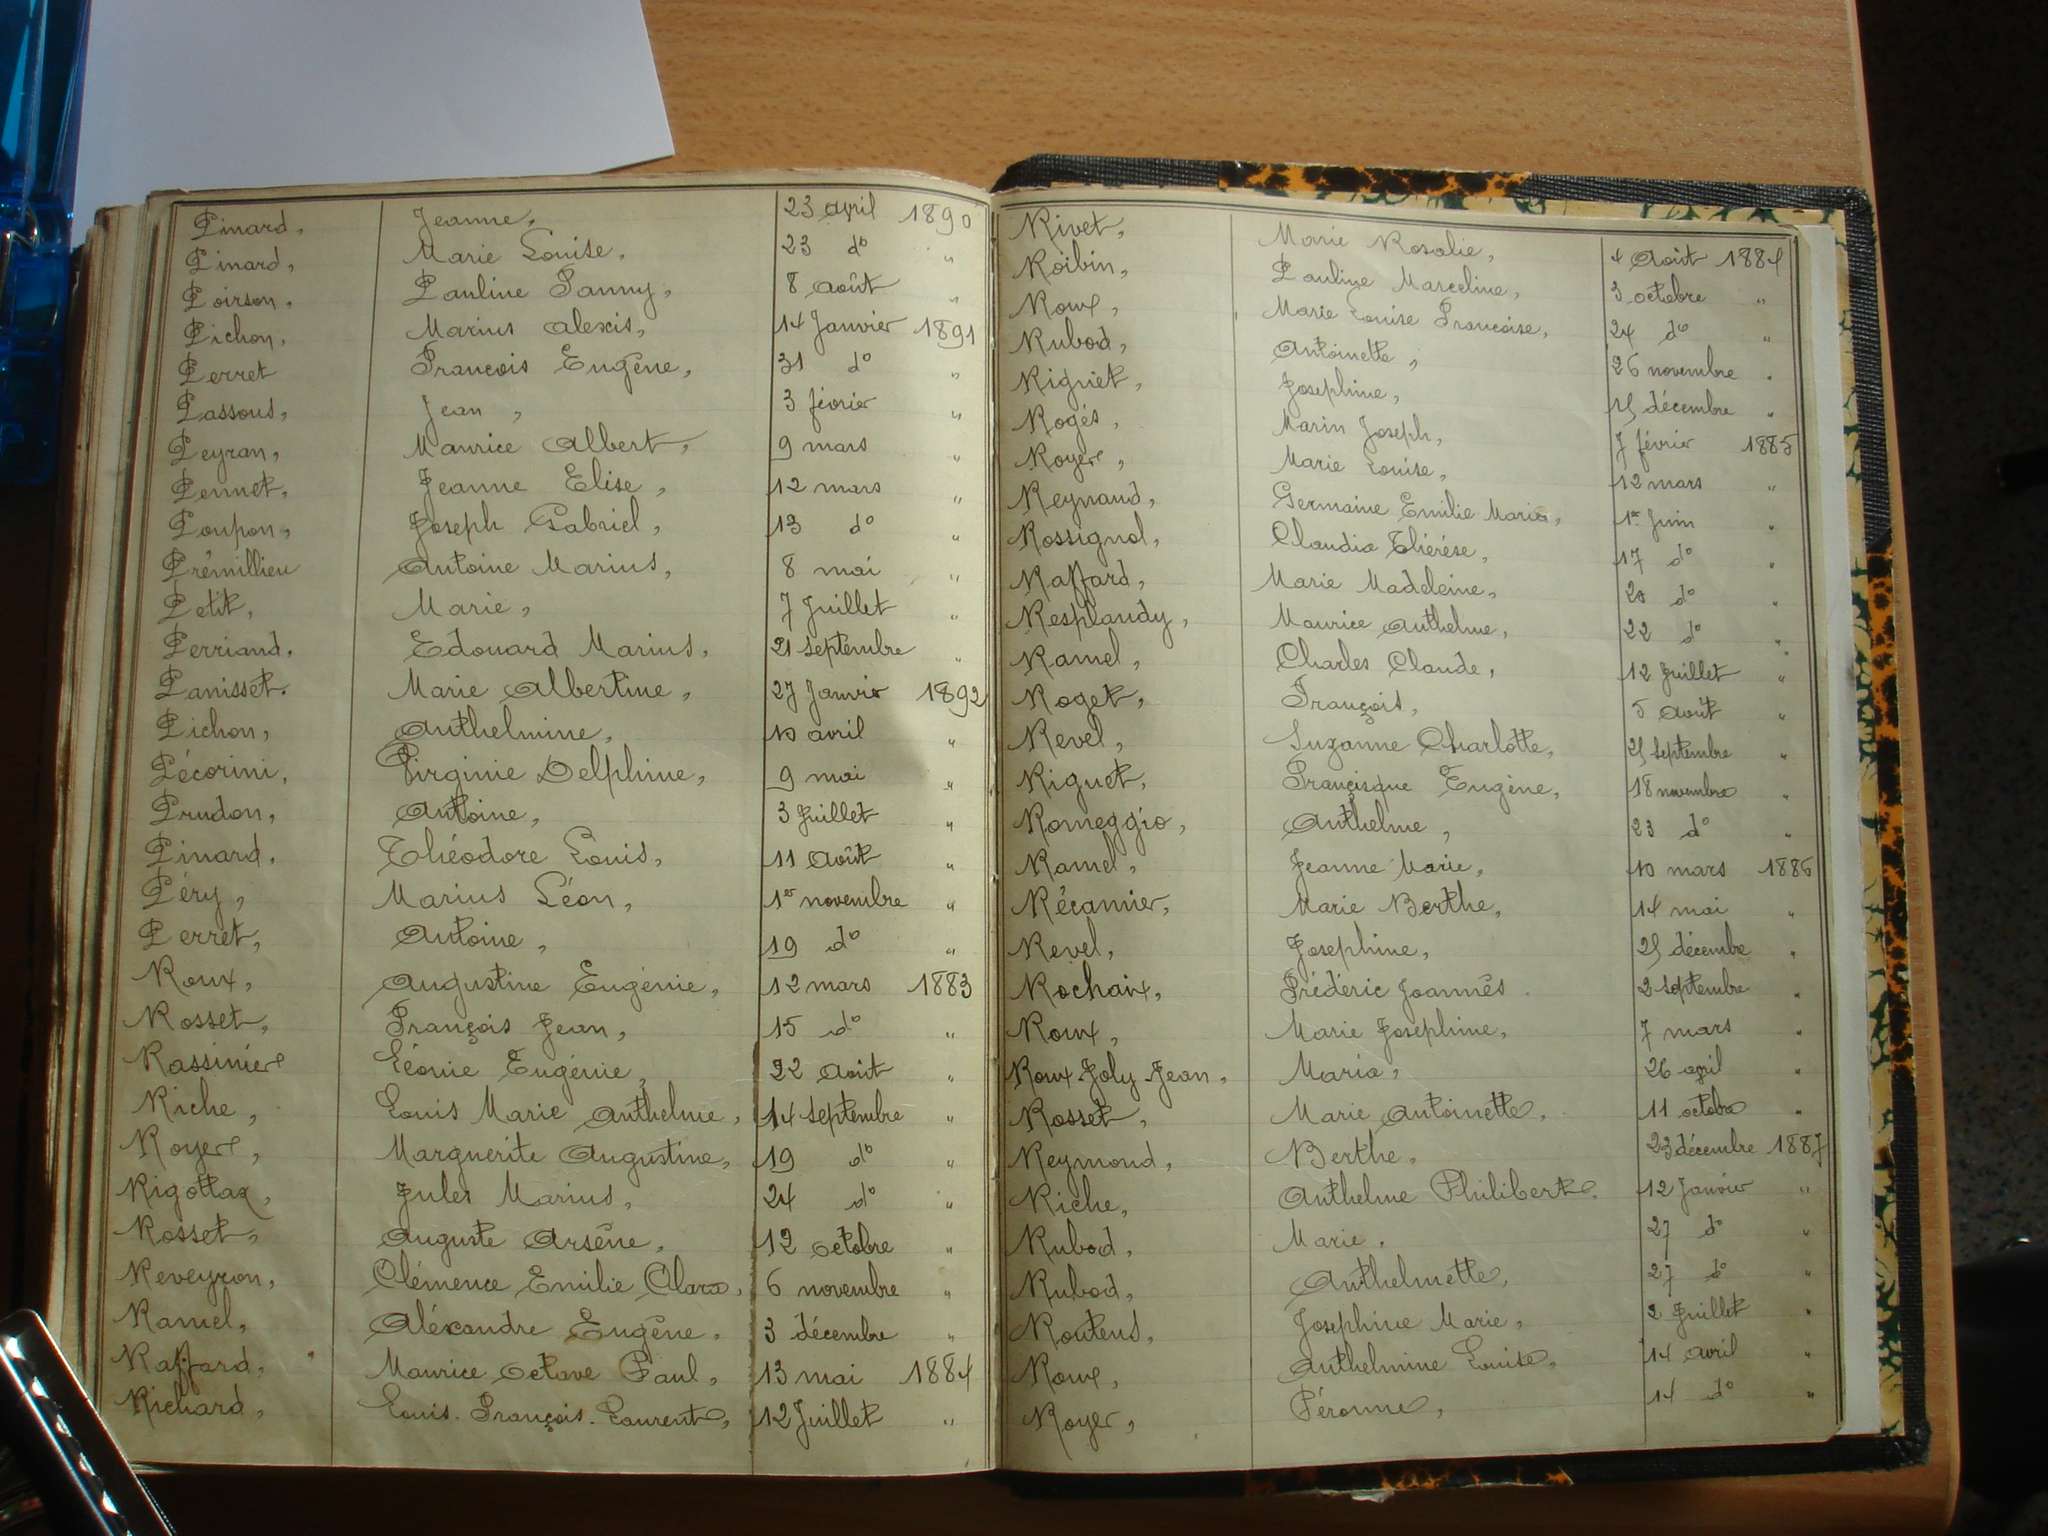 Pinard, Jeanne, 23 avril 1890
Pinard, Marie Louise, 23 do "
Poirson, Pauline Fanny, 8 Août "
Pichon, Marius Alexis, 14 Janvier 1891
Perret François Eugène, 31 do "
Passous, Jean, 3 février "
Peyran, Maurice Albert, 9 mars "
Pennet, Jeanne Elise, 12 mars "
Poupon, Joseph Gabriel, 13 do "
Prémillieu Antoine Marius, 8 mai "
Petit, Marie, 7 Juillet "
Perriand, Edouard Marius, 21 Septembre "
Panisset. Marie Albertine, 27 Janvier 1892
Pichon, Anthelmine, 10 avril "
Pécorini, Virginie Delphine, 9 mai "
Prudon, Antoine, 3 Juillet "
Pinard, Théodore Louis, 11 Août "
Péry, Marius Léon, 1er novembre "
Perret, Antoine, 19 do "
Roux, Augustine Eugénie, 12 mars 1883
Rosset, François Jean, 15 do "
Rassinier Léonie Eugénie, 22 Août "
Riche, Louis Marie Anthelme, 14 Septembre "
Royer, Marguerite Augustine, 19 do "
Rigottaz, Jules Marius, 24 do "
Rosset, Auguste Arsène, 12 Octobre "
Reveyron, Clémence Emilie Clara, 6 novembre "
Ramel, Aléxandre Eugène, 3 décembre "
Raffard, Maurice Octave Paul, 13 mai 1884
Richard, Louis. François. Laurent, 12 Juillet "
Rivet, Marie Rosalie, 4 Août 1884
Roibin, Pauline Marceline, 3 octobre "
Roux, Marie Louise Françoise, 24 do "
Rubod, Antoinette, 26 novembre "
Riguet, Josephine, 25 décembre "
Rogés, Marin Joseph, 7 février 1885
Royer, Marie Louise, 12 mars "
Reynaud, Germaine Emilie Marie, 1er Juin "
Rossignol, Claudia Thérèse, 17 do "
Raffard, Marie Madeleine, 20 do "
Resplandy, Maurice Anthelme, 22 do "
Ramel, Charles Claude, 12 Juillet "
Roget, François, 5 Août "
Revel, Suzanne Charlotte, 25 Septembre "
Riguet, Françisque Eugène, 18 novembre "
Romeggio, Anthelme, 23 do "
Ramel, Jeanne Marie, 10 mars 1886
Récamier, Marie Berthe, 14 mai "
Revel, Josephine, 25 décembre "
Rochaix, Frédéric Joannès 2 Septembre "
Roux, Marie Joséphine, 7 mars "
Roux Joly Jean, Maria, 26 april "
Rosset, Marie Antoinette, 11 octobre "
Reymond, Berthe, 23 décembre 1887
Riche, Anthelme Philibert. 12 Janvier "
Rubod, Marie, 27 do "
Rubod, Anthelmette, 27 do "
Routens, Josephine Marie, 2 Juillet "
Roux, Anthelmine Louise, 14 avril "
Royer, Péronne, 14 do "